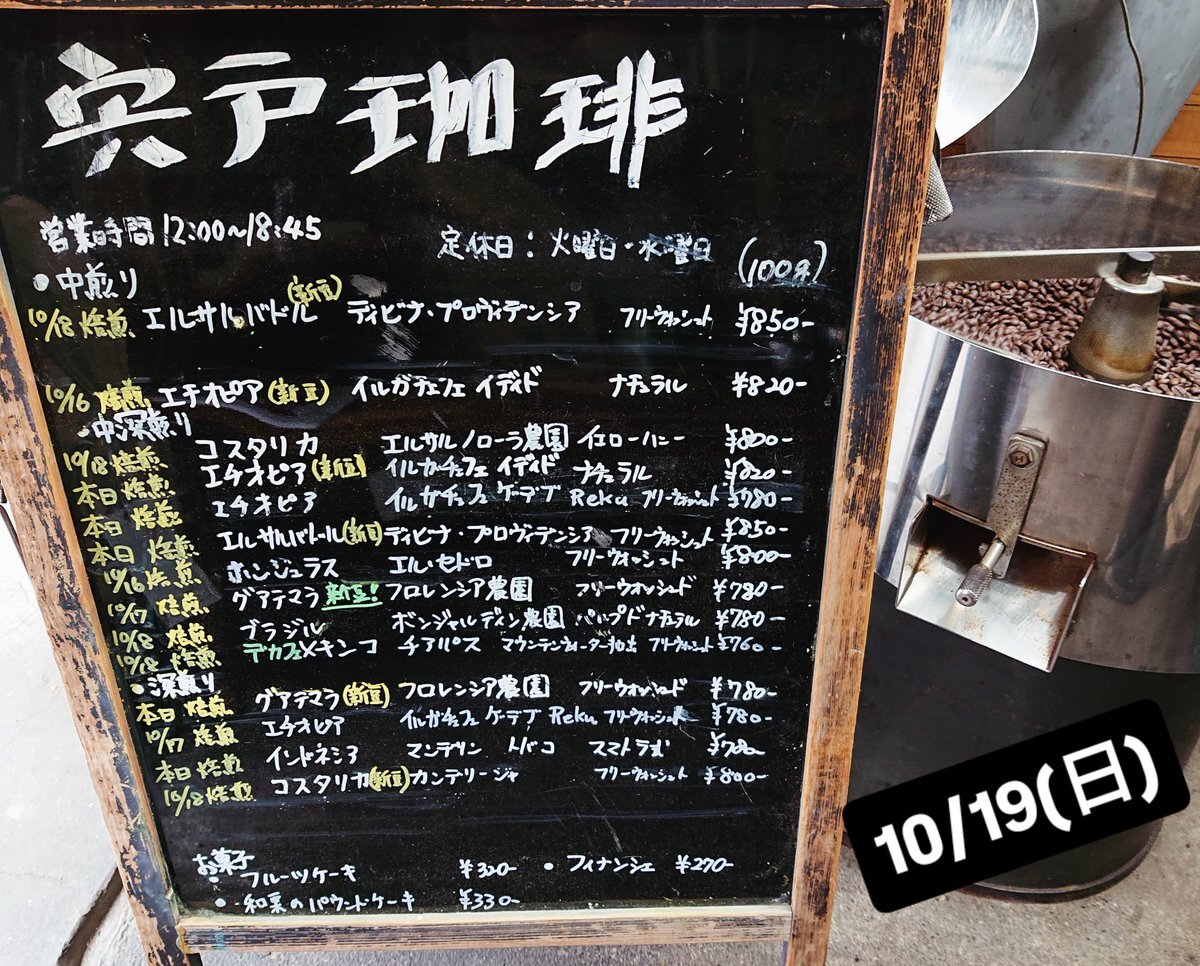 宍戸珈琲
営業時間 12:00~18:45 定休日：火曜日・水曜日 (100g)
・中煎り
10/18 焙煎 エルサルバドル (新豆) ディビナ・プロヴィデンシア フリーウォッシュト ¥850-
10/16 焙煎 エチオピア (新豆) イルガチェフェ イディド ナチュラル ¥820-
・中深煎り
10/18 焙煎 コスタリカ エルサルノローラ農園 イエローハニー ¥800-
本日 焙煎 エチオピア (新豆) イルガチェフェ イディド ナチュラル ¥820-
本日 焙煎 エチオピア イルガチェフェ ゲーデブ Reku フリーウォッシュト ¥780-
本日 焙煎 エルサルバトール (新豆) ディビナ・プロヴィデンシア フリーウォッシュト ¥850-
10/16 焙煎 ホンジュラス エル・セドロ フリーウォッシュト ¥800-
10/17 焙煎 グアテマラ 新豆! フロレンシア農園 フリーウォッシュド ¥780-
10/8 焙煎 ブラジル ボンジャルディン農園 パルプドナチュラル ¥780-
10/18 焙煎 デカフェメキシコ チアパス マウンテンウォーター抽出 フリーウォッシュト ¥760-
・深煎り
本日 焙煎 グアテマラ (新豆) フロレンシア農園 フリーウォッシュド ¥780-
10/17 焙煎 エチオピア イルガチェフェ ゲーデブ Reku フリーウォッシュト ¥780-
本日 焙煎 インドネシア マンデリン トバコ スマトラ式 ¥780-
10/18 焙煎 コスタリカ (新豆) カンデリージャ フリーウォッシュト ¥800-
お菓子
・フルーツケーキ ¥320- ・フィナンシェ ¥270-
・和菓のパウンドケーキ ¥330-
10/19(日)